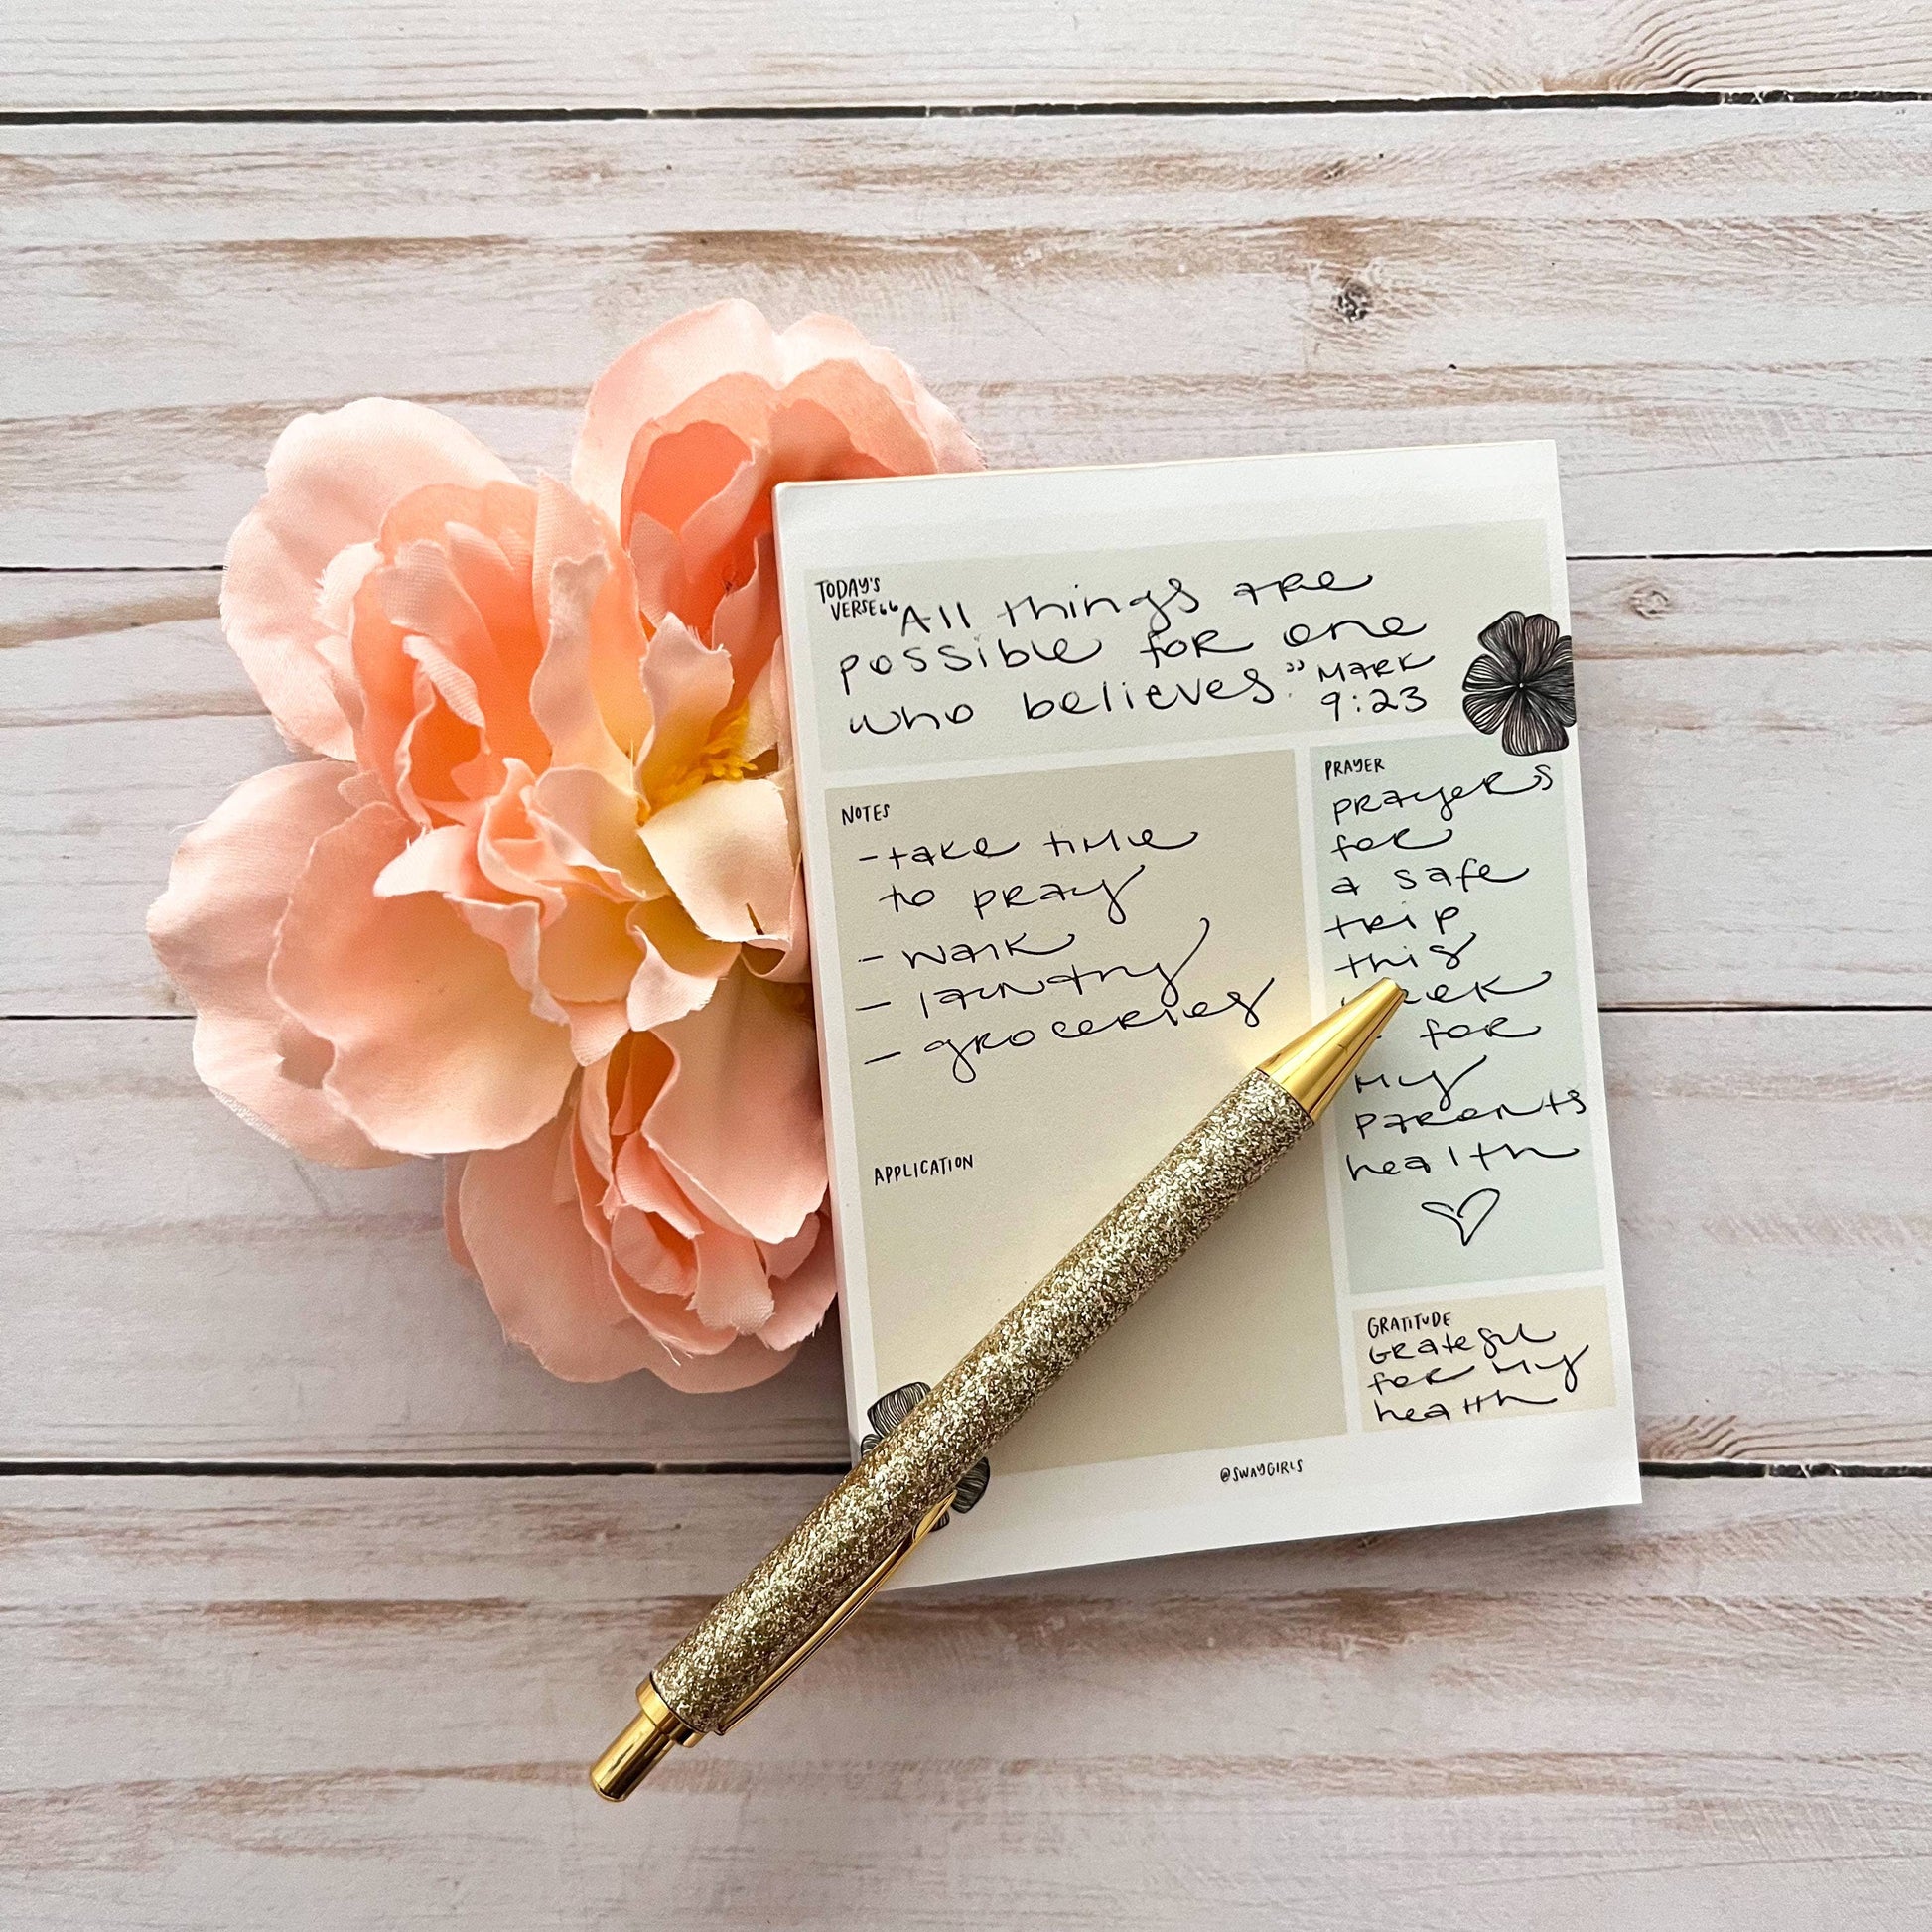 TODAY'S
VERSE
"All things are
possible for one
who believes."
Mark
9:23
NOTES
- take time
to pray
- walk
- laundry
- groceries
APPLICATION
PRAYER
prayers
for
a safe
trip
this
for
my
parents
health
GRATITUDE
Grateful
for my
health
@SWAYGIRLS